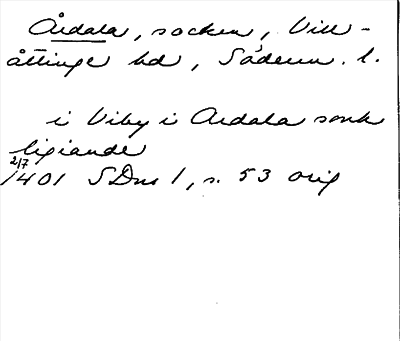 Årdala, socken, Vill-
åttinge hd, Söderm. l.
i Viby i Ardala sonk
ligiande
2/7
1401 SDns 1, s. 53 orig